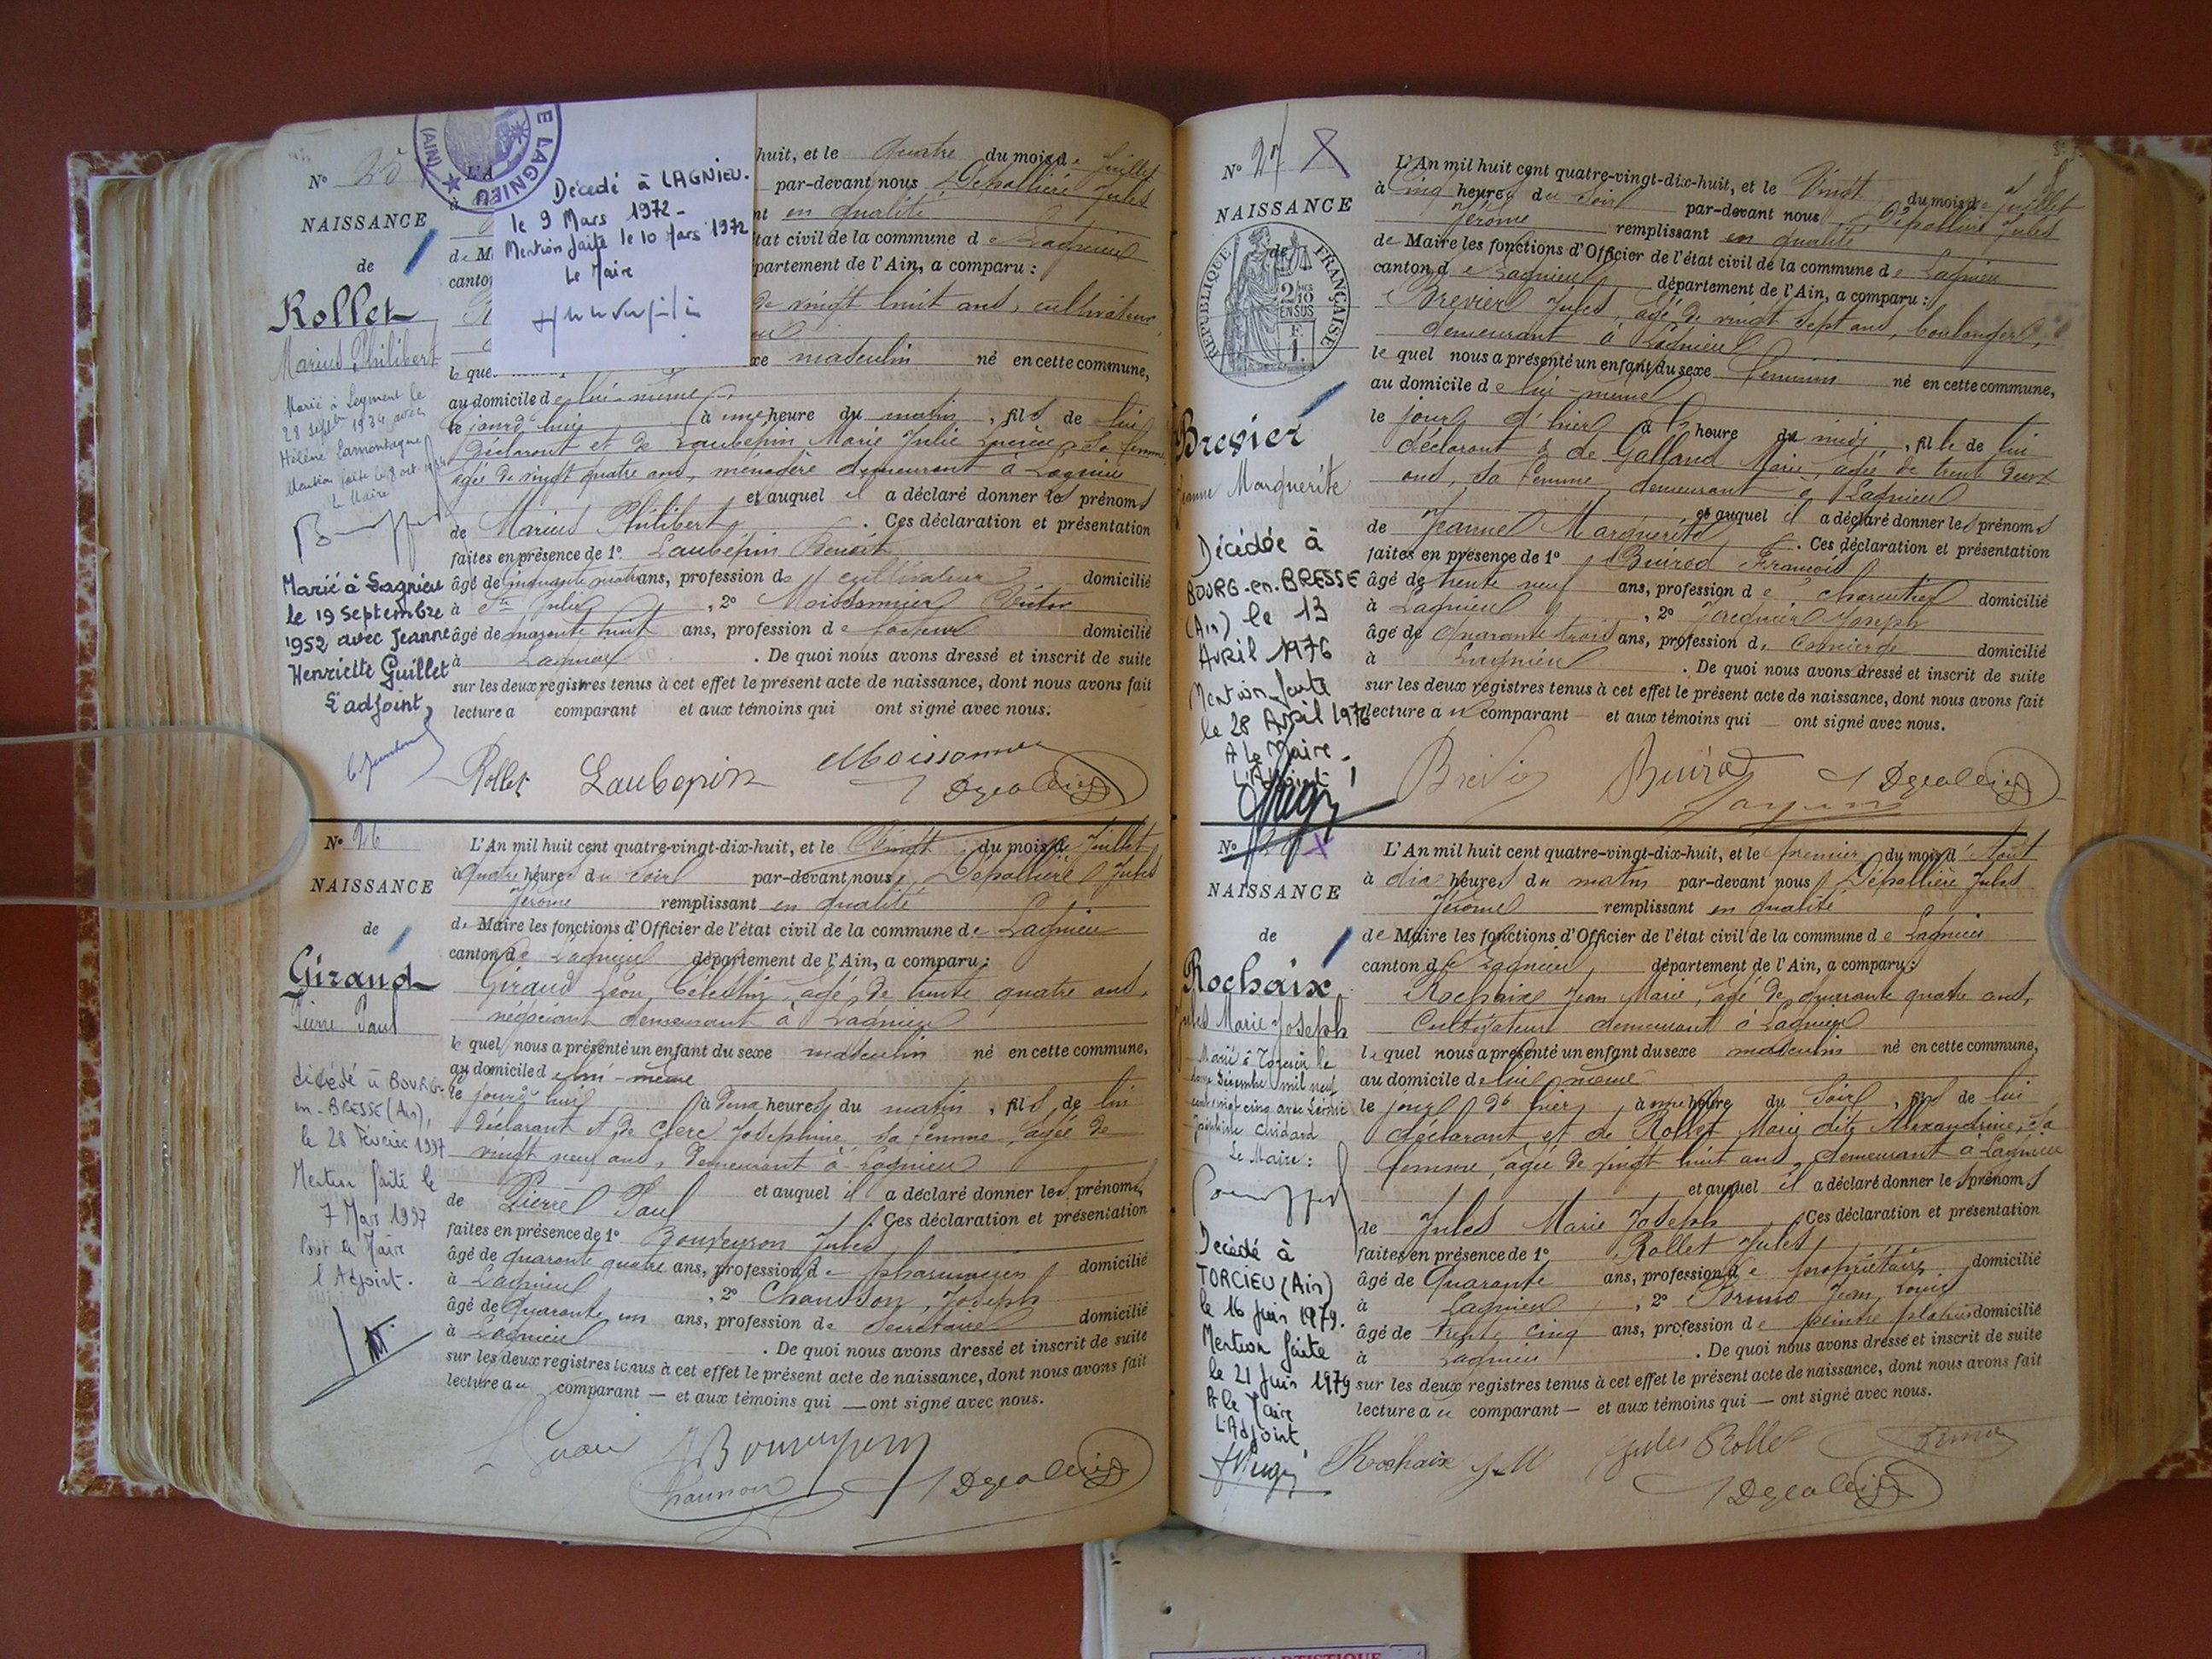 N° 25
NAISSANCE
de
Rollet
Marius Philibert
Marié à Leyment le
28 septbre 1934 avec
Hélène Lamontagne
Mention faite le 8 oct. 1934
Le Maire
Marié à Lagnieu
le 19 Septembre
1952 avec Jeanne
Henriette Guillet
L'adjoint,
E LAGNIEU
(AIN)
Décédé à LAGNIEU.
le 9 Mars 1972 -
Mention faite le 10 Mars 1972
Le Maire
L'A
huit, et le quatre du mois de Juillet
à par-devant nous Dépallière Jules
nt en qualité
de M tat civil de la commune de Lagnieu
canto partement de l'Ain, a comparu :
de vingt huit ans, cultivateur,
xe masculin né en cette commune,
le que
au domicile de lui-même
le jourd'hui à une heure du matin, fils de lui
déclarant et de Laubépin Marie Julie sa femme
agée de vingt quatre ans, ménagère demeurant à Lagnieu
et auquel il a déclaré donner les prénoms
de Marius Philibert. Ces déclaration et présentation
faites en présence de 1° Laubépin Benoît
âgé de cinquante quatre ans, profession de cultivateur domicilié
à Ste Julie, 2° Moissonnier Victor
âgé de quarante huit ans, profession de facteur domicilié
à Lagnieu. De quoi nous avons dressé et inscrit de suite
sur les deux registres tenus à cet effet le présent acte de naissance, dont nous avons fait
lecture a comparant et aux témoins qui ont signé avec nous.
Rollet Laubepin Moissonnier
N° 26
NAISSANCE
de
Giraud
Pierre Paul
décédé à BOURG-
en-BRESSE (Ain),
le 28 Février 1997
Mention faite le
7 Mars 1997
Pour le Maire
l'Adjoint.
L'An mil huit cent quatre-vingt-dix-huit, et le Vingt du mois de Juillet
à quatre heures du soir par-devant nous, Dépallière Jules
Jérôme remplissant en qualité
de Maire les fonctions d'Officier de l'état civil de la commune de Lagnieu
canton de Lagnieu département de l'Ain, a comparu :
Giraud Léon Célestin, agé de trente quatre ans,
négociant demeurant à Lagnieu
le quel nous a présenté un enfant du sexe masculin né en cette commune,
au domicile de lui-même
le jourd'hui à deux heures du matin, fils de lui
déclarant et de Clerc Joséphine sa femme, agée de
vingt neuf ans, demeurant à Lagnieu
et auquel il a déclaré donner les prénoms
de Pierre Paul. Ces déclaration et présentation
faites en présence de 1° Bouveyron Jules
âgé de quarante quatre ans, profession de pharmacien domicilié
à Lagnieu, 2° Chanson, Joseph
âgé de quarante un ans, profession de secrétaire domicilié
à Lagnieu. De quoi nous avons dressé et inscrit de suite
sur les deux registres tenus à cet effet le présent acte de naissance, dont nous avons fait
lecture au comparant — et aux témoins qui — ont signé avec nous.
N° 27
NAISSANCE
de
RÉPUBLIQUE FRANÇAISE
Brevier
Jeanne Marguerite
Décédée à
BOURG-en-BRESSE
(Ain) le 13
Avril 1976
Mention faite
le 28 Avril 1976
P. le Maire -
L'Adjoint
L'An mil huit cent quatre-vingt-dix-huit, et le Vingt du mois de Juillet
à cinq heures du soir par-devant nous, Dépallière Jules
Jérôme remplissant en qualité
de Maire les fonctions d'Officier de l'état civil de la commune de Lagnieu
canton de Lagnieu, département de l'Ain, a comparu :
Brevier Jules, agé de vingt sept ans, boulanger,
demeurant à Lagnieu
le quel nous a présenté un enfant du sexe féminin né en cette commune,
au domicile de lui-même
le jour d'hier à heure du midi, fille de lui
déclarant & de Galland Marie, agée de trente deux
ans, sa femme, demeurant à Lagnieu
et auquel il a déclaré donner les prénoms
de Jeanne Marguerite. Ces déclaration et présentation
faites en présence de 1° Buirod François
âgé de trente neuf ans, profession de charcutier domicilié
à Lagnieu, 2° Jacquier Joseph
âgé de quarante trois ans, profession de concierge domicilié
à Lagnieu. De quoi nous avons dressé et inscrit de suite
sur les deux registres tenus à cet effet le présent acte de naissance, dont nous avons fait
lecture au comparant — et aux témoins qui — ont signé avec nous.
N° 28
NAISSANCE
de
Rochaix
Jules Marie Joseph
Marié à Torcieu le
Décembre mil neuf
cent vingt cinq avec Léonie
Joséphine Chidard
Le Maire :
Décédé à
TORCIEU (Ain)
le 16 Juin 1979.
Mention faite
le 21 Juin 1979
P. le Maire
L'Adjoint,
L'An mil huit cent quatre-vingt-dix-huit, et le premier du mois d'Août
à dix heures du matin par-devant nous Dépallière Jules
Jérôme remplissant en qualité
de Maire les fonctions d'Officier de l'état civil de la commune de Lagnieu
canton de Lagnieu, département de l'Ain, a comparu :
Rochaix Jean Marie, agé de quarante quatre ans,
cultivateur demeurant à Lagnieu
le quel nous a présenté un enfant du sexe masculin né en cette commune,
au domicile de lui même
le jour d'hier à une heure du soir, fils de lui
déclarant et de Rollet Marie dite Alexandrine, sa
femme, agée de vingt huit ans, demeurant à Lagnieu
et auquel il a déclaré donner les prénoms
de Jules Marie Joseph. Ces déclaration et présentation
faites en présence de 1° Rollet Jules,
âgé de Quarante ans, profession de propriétaire domicilié
à Lagnieu, 2° Bruno Jean Louis
âgé de trente cinq ans, profession de peintre plâtrier domicilié
à Lagnieu. De quoi nous avons dressé et inscrit de suite
sur les deux registres tenus à cet effet le présent acte de naissance, dont nous avons fait
lecture au comparant — et aux témoins qui — ont signé avec nous.
Rochaix J-M Jules Rollet Bruno